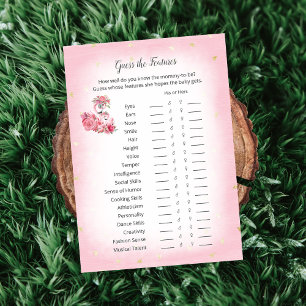 Guess the Features
How well do you know the mommy-to-be?
Guess whose features she hopes the baby gets.
His or Hers
Eyes ___ ♂ ♀ ___
Ears ___ ♂ ♀ ___
Nose ___ ♂ ♀ ___
Smile ___ ♂ ♀ ___
Hair ___ ♂ ♀ ___
Height ___ ♂ ♀ ___
Voice ___ ♂ ♀ ___
Temper ___ ♂ ♀ ___
Intelligence ___ ♂ ♀ ___
Social Skills ___ ♂ ♀ ___
Sense of Humor ___ ♂ ♀ ___
Cooking Skills ___ ♂ ♀ ___
Athleticism ___ ♂ ♀ ___
Personality ___ ♂ ♀ ___
Dance Skills ___ ♂ ♀ ___
Creativity ___ ♂ ♀ ___
Fashion Sense ___ ♂ ♀ ___
Musical Talent ___ ♂ ♀ ___